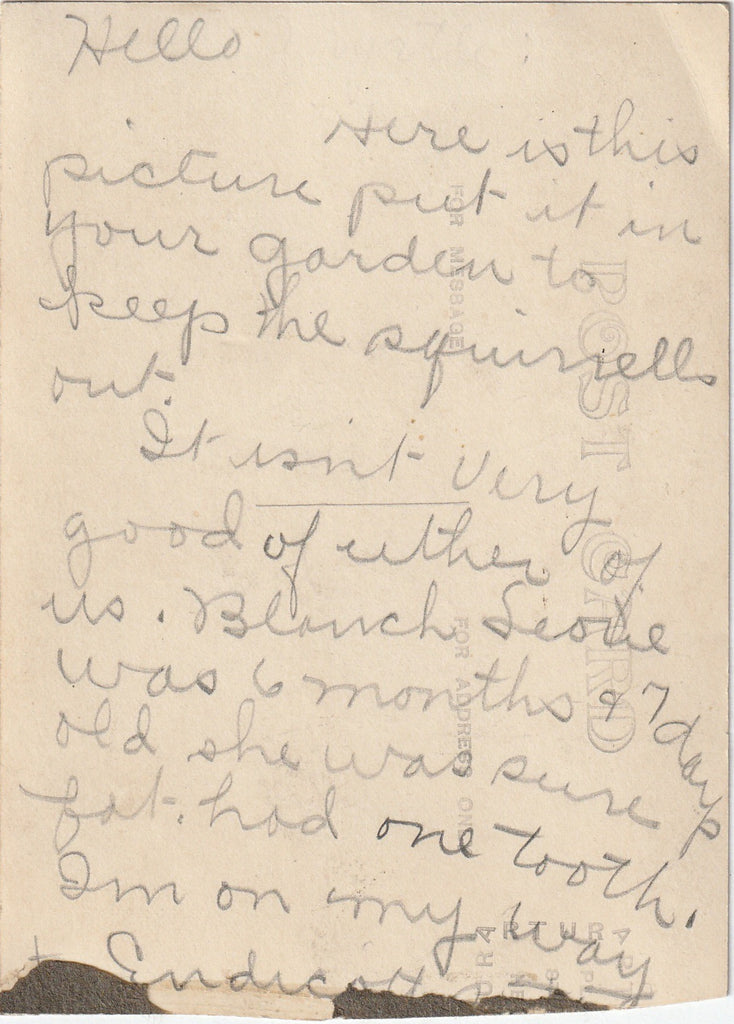 Hello
Here is this
picture put it in
your garden to
keep the squirrells
out.
It isn't very
good of either of
us. Blanch Leone
was 6 months & 7 days
old she was sure
fat. had one tooth.
I'm on my way
Endicott
POST CARD
FOR MESSAGE
FOR ADDRESS ON
ARTURA